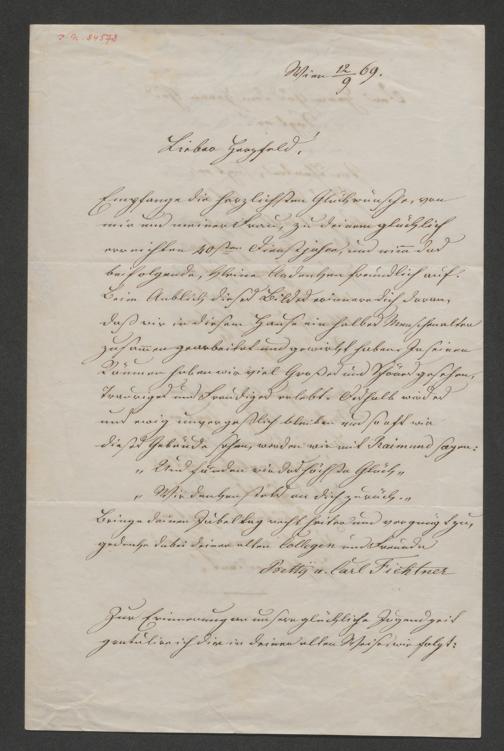 J. N. 84578
Wien 12/9 69.
Lieber Herzfeld!
Empfange die herzlichsten Glückwünsche, von
mir und meiner Frau, zu deinem glücklich
erreichten 40sten Dienstjahre, und nimm das
beifolgende, kleine Andenken freundlich auf.
Beim Anblick dieses Bildes erinnere dich daran,
daß wir in diesem Hause ein halbes Menschenalter
zusammen gearbeitet und gewirkt haben. In seinen
Räumen haben wir viel Großes und Schönes gesehen,
Trauriges und Freudiges erlebt. Deshalb wird es
uns ewig unvergeßlich bleiben und so oft wir
dieses Gebäude sehen, werden wir mit Raimund sagen:
„ Und fänden wir das höchste Glück,
„ Wir denken stets an dich zurück. „
Bringe deinen Jubeltag recht heiter und vergnügt zu,
gedenke dabei deiner alten Collegen und Freunde
Betty u. Carl Fichtner
Zur Erinnerung an unsere glückliche Jugendzeit
gratulire ich dir in deiner alten Weise wie folgt: